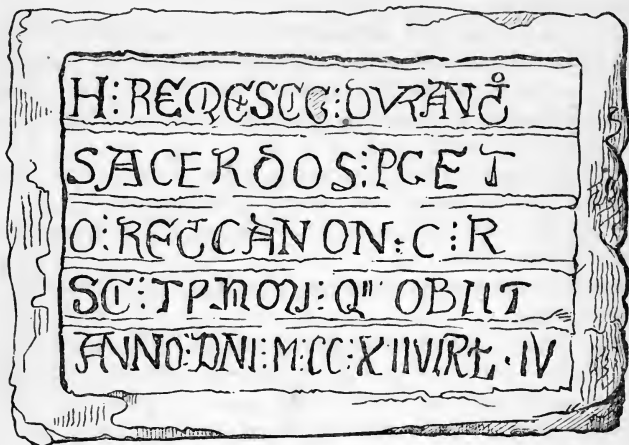 H⁝REQESCE⁝DVRANC̊
SACERDOS⁝PCET
O⁝RECCANON⁝C⁝R
SC⁝TPMON⁝Q" OBIIT
ANNO⁝DNI⁝M⁝CC⁝XIIVIRL·IV